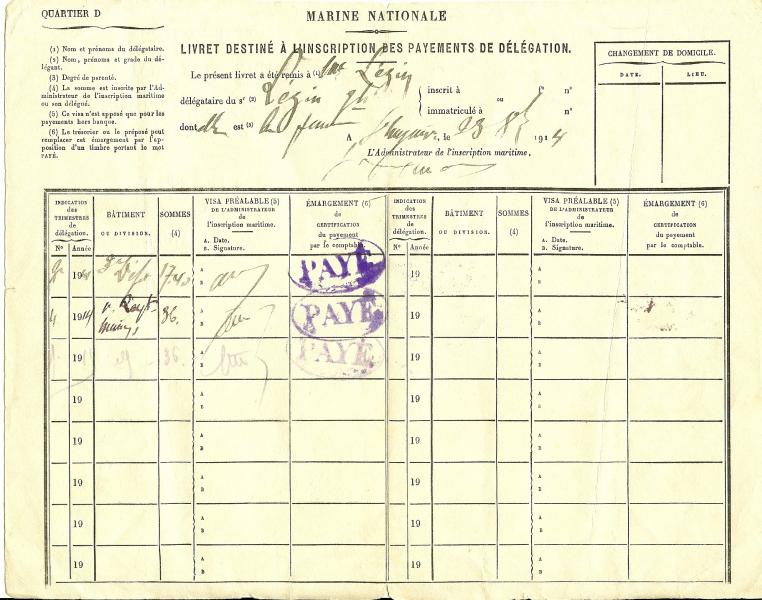 QUARTIER D
MARINE NATIONALE
LIVRET DESTINÉ À L'INSCRIPTION DES PAYEMENTS DE DÉLÉGATION.
(1) Nom et prénoms du délégataire.
(2) Nom, prénoms et grade du dé-
légant.
(3) Degré de parenté.
(4) La somme est inscrite par l'Ad-
ministrateur de l'inscription maritime
ou son délégué.
(5) Ce visa n'est apposé que pour les
payements hors banque.
(6) Le trésorier ou le préposé peut
remplacer cet émargement par l'ap-
position d'un timbre portant le mot
PAYÉ.
Le présent livret a été remis à (1) Mme Légin
délégataire du sr (2) Légin
inscrit à
ou
immatriculé à
fo no
no
dont est (3) la femme
A , le 23 1914
L'Administrateur de l'inscription maritime,
CHANGEMENT DE DOMICILE.
DATE. LIEU.
INDICATION des TRIMESTRES de délégation. No Année
BÂTIMENT OU DIVISION.
SOMMES (4)
VISA PRÉALABLE (5) DE L'ADMINISTRATEUR de l'inscription maritime. A. Date. B. Signature.
ÉMARGEMENT (6) de CERTIFICATION du payement par le comptable.
INDICATION des TRIMESTRES de délégation. No Année
BÂTIMENT OU DIVISION.
SOMMES (4)
VISA PRÉALABLE (5) DE L'ADMINISTRATEUR de l'inscription maritime. A. Date. B. Signature.
ÉMARGEMENT (6) de CERTIFICATION du payement par le comptable.
1914 A B PAYÉ 19 A B
4 1914 36. A B PAYÉ 19 A B
19 36. A B PAYÉ 19 A B
19 A B 19 A B
19 A B 19 A B
19 A B 19 A B
19 A B 19 A B
19 A B 19 A B